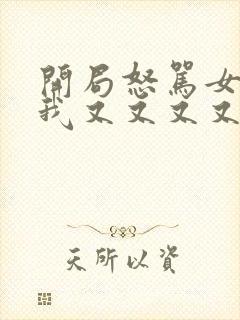 開局怒罵女
我又又又又
天所以資